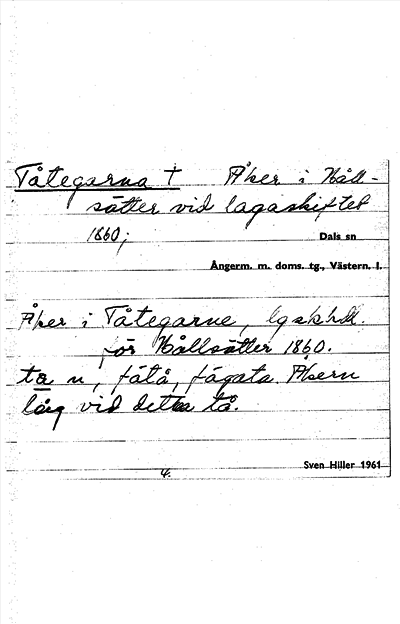 Tåtegarna † Åker i Håll-
sätter vid lagaskiftet
1860;
Dals sn
Ångerm. m. doms. tg., Västern. l.
Åker i Tåtegarne, lgskhdl.
för Hållsätter 1860.
tå n, fätå, fägata. Åkern
låg vid detta tå.
Sven Hiller 1961
4.